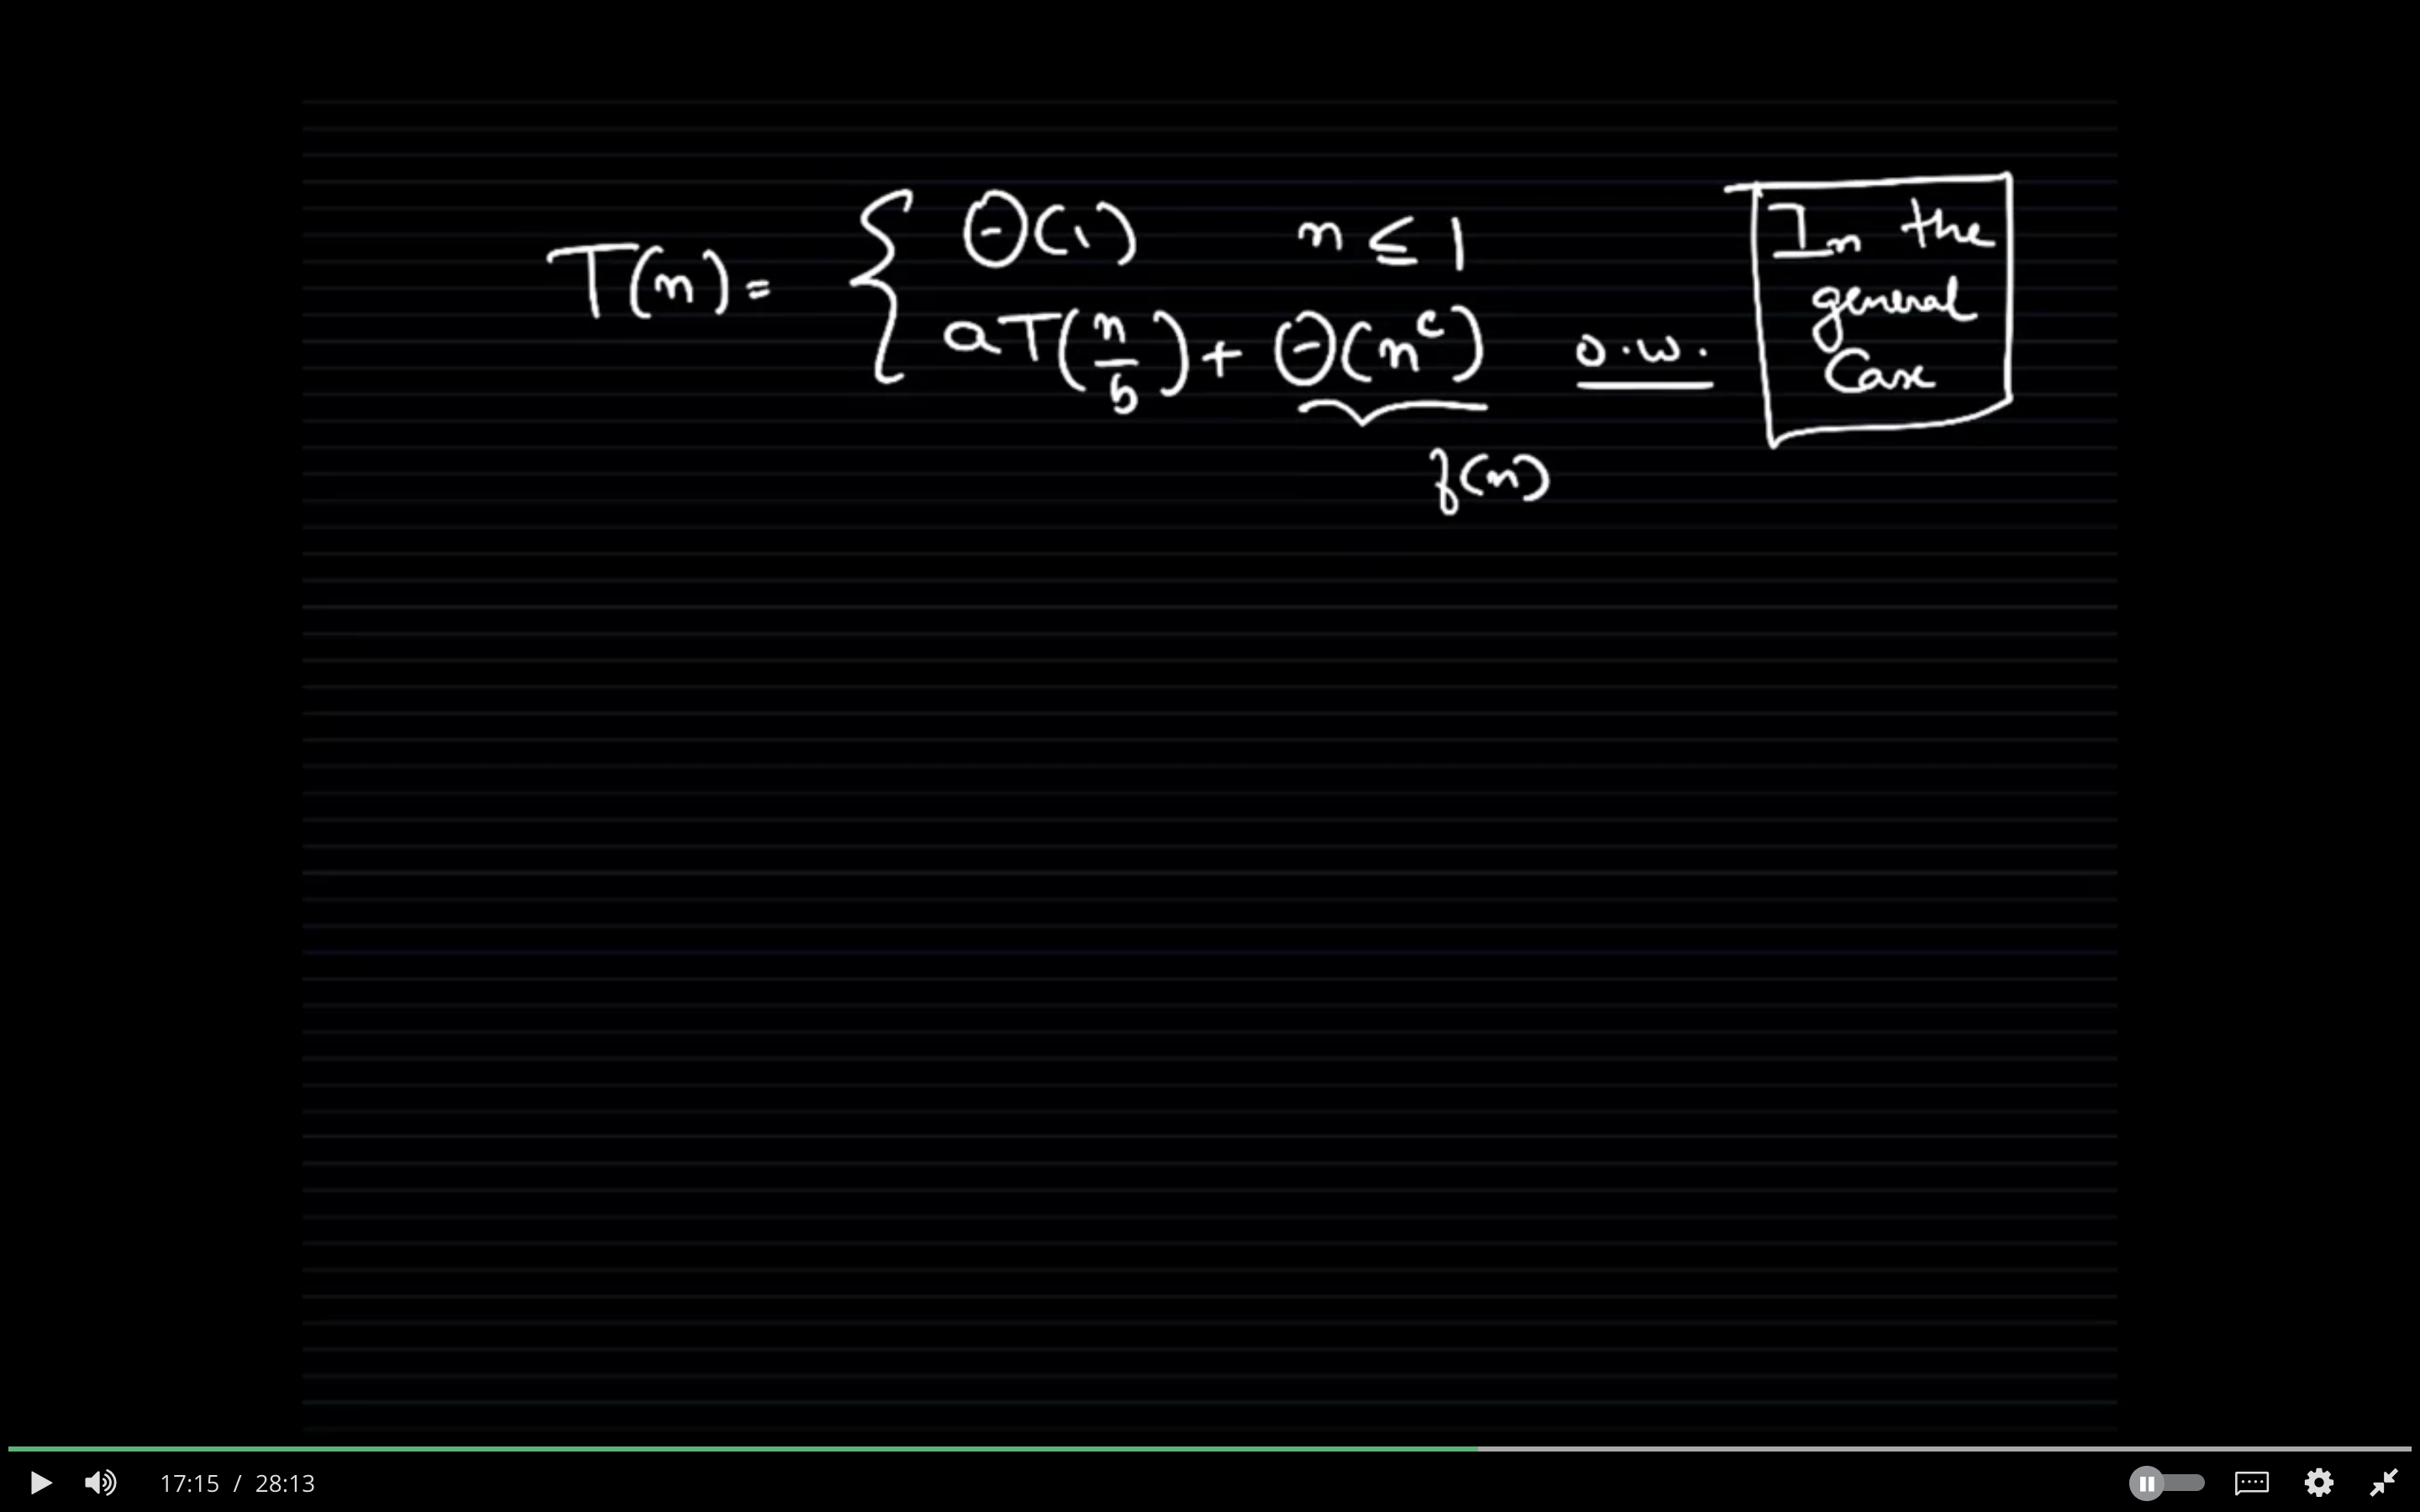 T(n) = { Θ(1) n ≤ 1
aT(n/b) + Θ(n^c) o.w.
f(n)
In the
general
Case
17:15 / 28:13